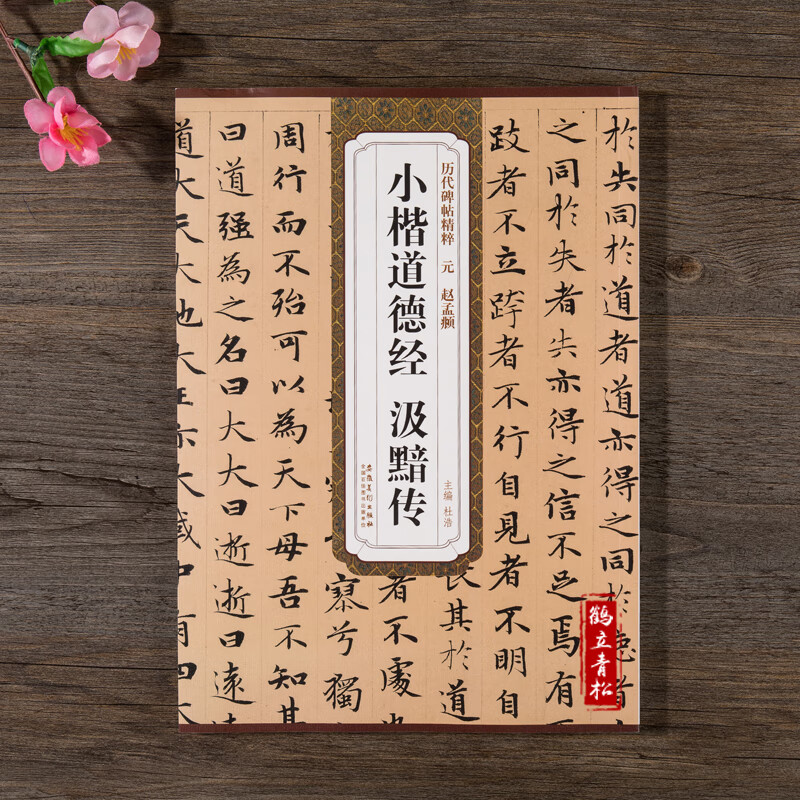 於失同於道者道亦得之同於德者
之同於失者失亦得之信不足焉有
跂者不立跨者不行自見者不明自
長其於道
者不處也
寮兮獨
周行而不殆可以為天下母吾不知其
曰道强為之名曰大大曰逝逝曰遠遠
道大天大地大王亦大域中有四大
历代碑帖精粹 元 赵孟頫
小楷道德经 汲黯传
主编 杜浩
安徽美术出版社
全国百佳图书出版单位
鹤立青松